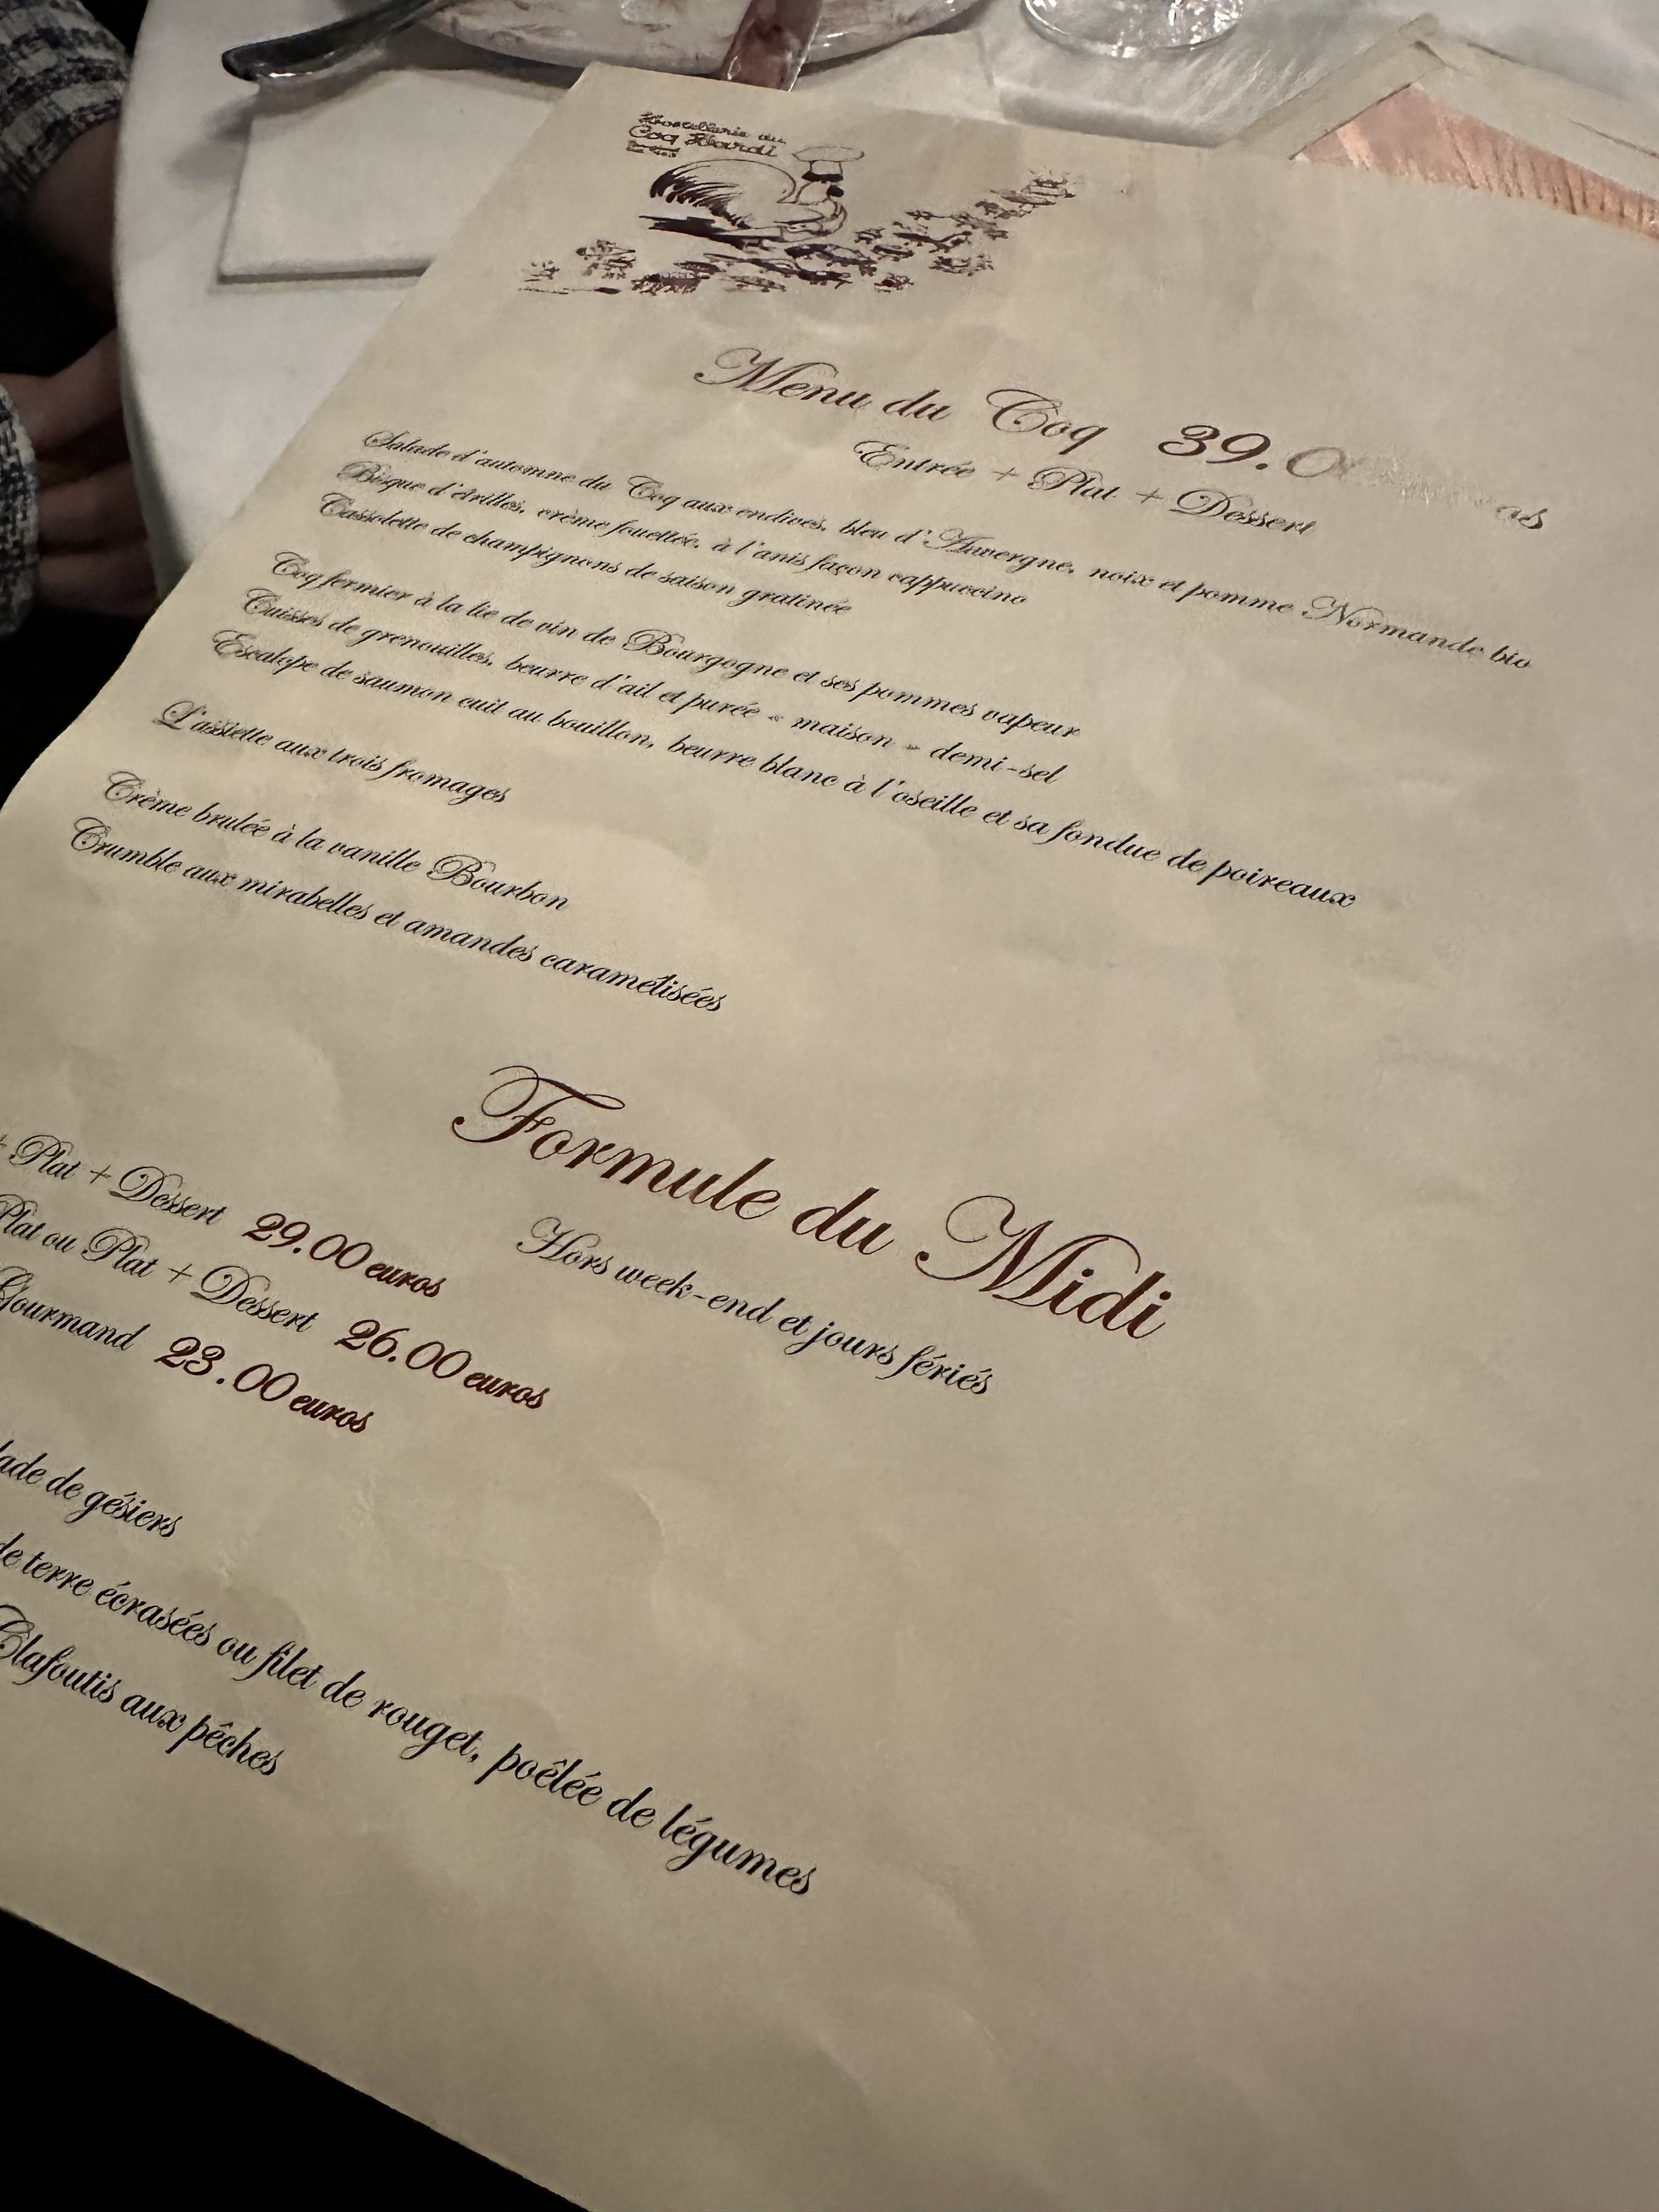 Hostellerie du
Coq Hardi
Menu du Coq 39.0
Entrée + Plat + Dessert
Salade d'automne du Coq aux endives, bleu d'Auvergne, noix et pomme Normande bio
Bisque d'étrilles, crème fouettée, à l'anis façon cappuccino
Cassolette de champignons de saison gratinée
Coq fermier à la lie de vin de Bourgogne et ses pommes vapeur
Cuisses de grenouilles, beurre d'ail et purée « maison » demi-sel
Escalope de saumon cuit au bouillon, beurre blanc à l'oseille et sa fondue de poireaux
L'assiette aux trois fromages
Crème brulée à la vanille Bourbon
Crumble aux mirabelles et amandes caramélisées
Formule du Midi
Hors week-end et jours fériés
+ Plat + Dessert 29.00 euros
Plat ou Plat + Dessert 26.00 euros
Gourmand 23.00 euros
lade de gésiers
de terre écrasées ou filet de rouget, poêlée de légumes
Clafoutis aux pêches